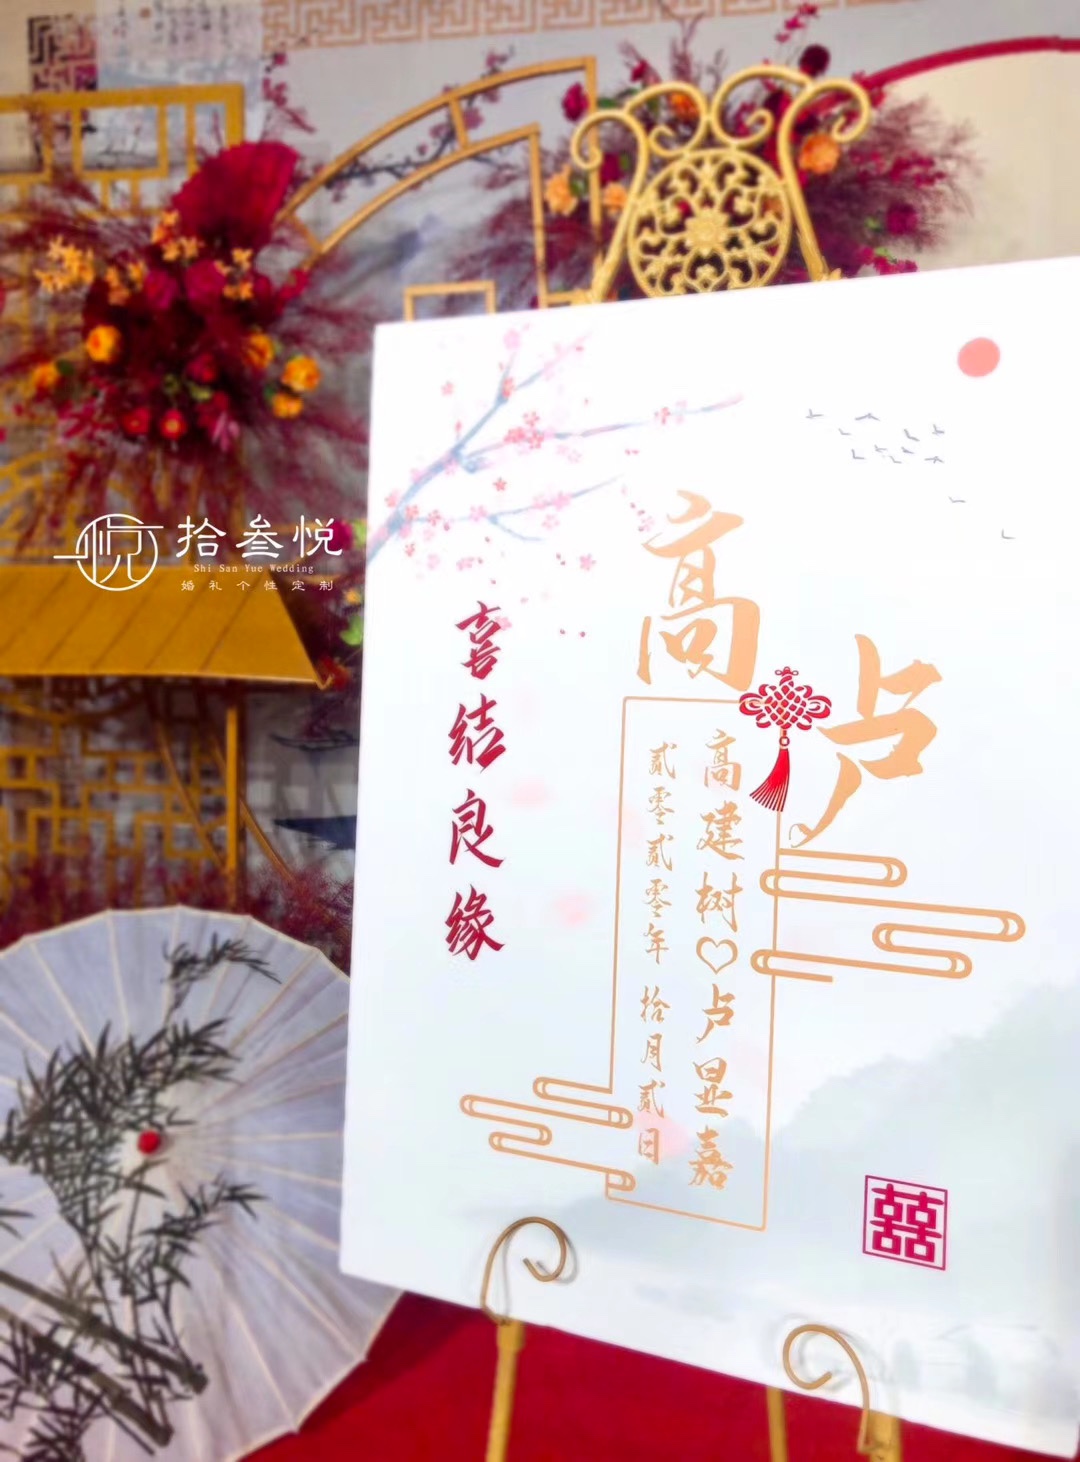 拾叁悦
Shi San Yue Wedding
婚礼个性定制
喜结良缘
高
卢
高建树♡卢显嘉
贰零贰零年 拾月贰日
囍